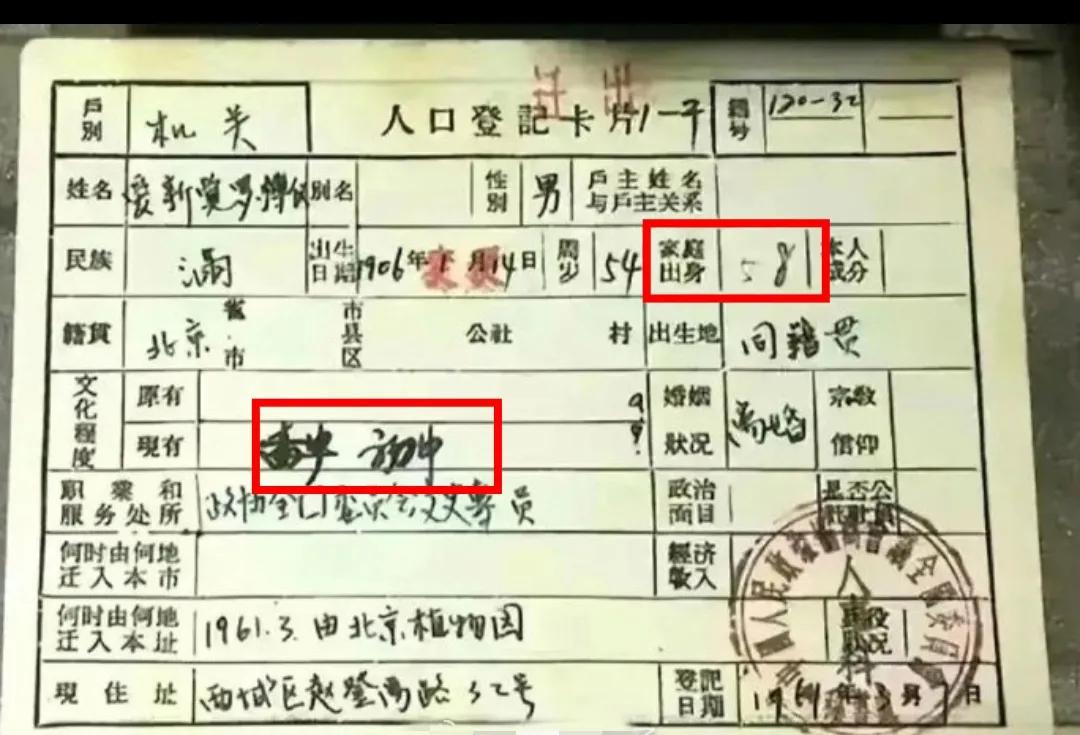 迁出
戶別 机关 人口登記卡片 1-干 編号 120-32
姓名 爱新觉罗溥仪 別名 性別 男 戶主姓名与戶主关系
民族 满 出生日期 1906年 月14日 周岁 54 家庭出身 58 本人成分
籍貫 北京 省市 市县区 公社 村 出生地 同籍贯
文化程度 原有 婚姻狀况 离婚 宗教信仰
現有 高中 初中
职業和服务处所 政协全国委员会文史专员 政治面目 是否公社社員
何时由何地迁入本市 經济收入
何时由何地迁入本址 1961.3.由北京植物园
現住址 西城区赵登禹路32号 登記日期 1961年3月7日